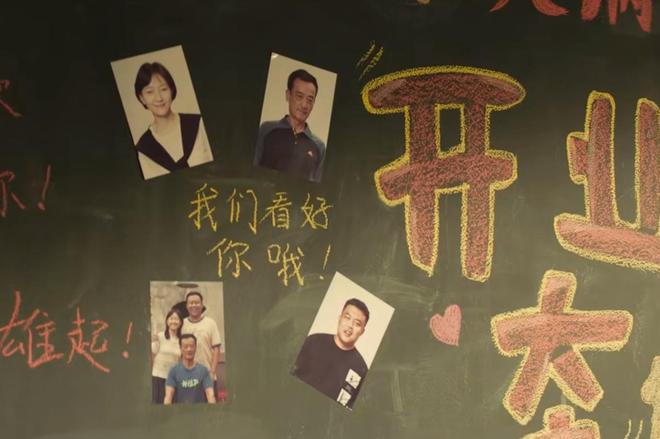 你！
我们看好
你哦！
雄起！
开业
大